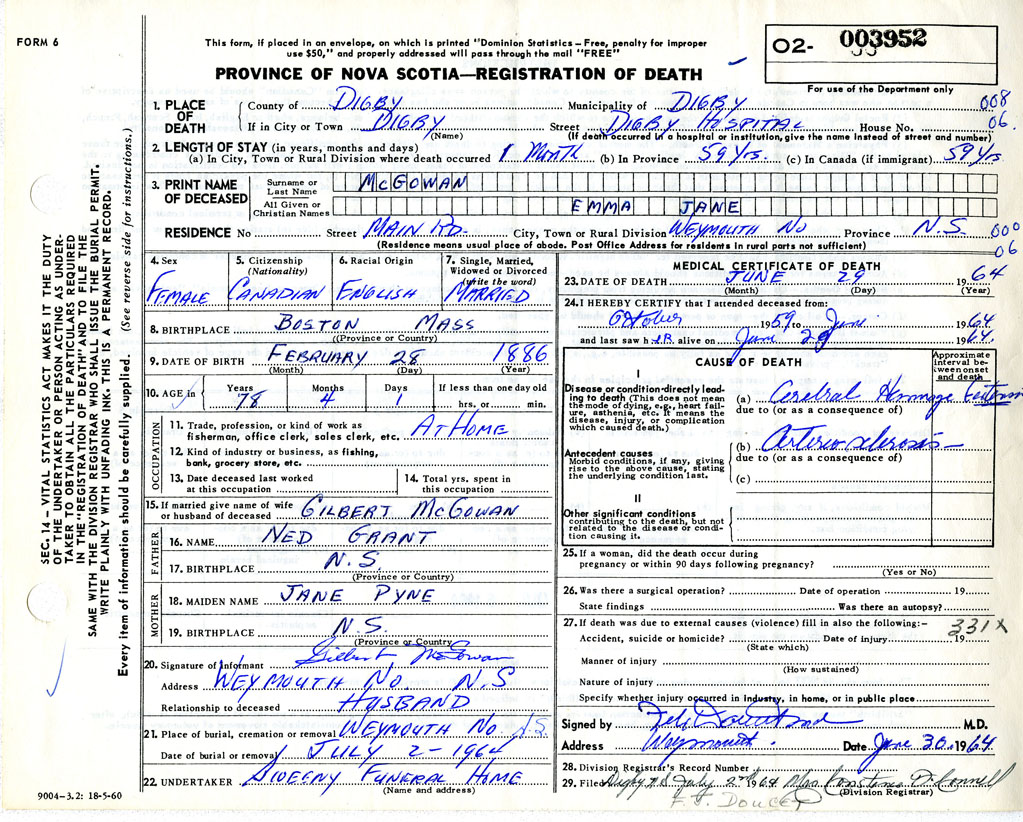 FORM 6
This form, if placed in an envelope, on which is printed "Dominion Statistics – Free, penalty for improper
use $50," and properly addressed will pass through the mail "FREE"
02- 003952
For use of the Department only
PROVINCE OF NOVA SCOTIA—REGISTRATION OF DEATH
1. PLACE OF DEATH County of DIGBY Municipality of DIGBY 008
If in City or Town DIGBY (Name) Street DIGBY HOSPITAL House No. 06.
(If death occurred in a hospital or institution, give the name instead of street and number)
2. LENGTH OF STAY (in years, months and days)
(a) In City, Town or Rural Division where death occurred 1 MONTH (b) In Province 59 Yrs. (c) In Canada (if immigrant) 59 Yrs
3. PRINT NAME OF DECEASED
Surname or Last Name McGOWAN
All Given or Christian Names EMMA JANE
RESIDENCE No Street MAIN RD. City, Town or Rural Division WEYMOUTH NO Province N.S. 000
(Residence means usual place of abode. Post Office Address for residents in rural parts not sufficient) 06
4. Sex FEMALE
5. Citizenship (Nationality) CANADIAN
6. Racial Origin ENGLISH
7. Single, Married, Widowed or Divorced (write the word) MARRIED
8. BIRTHPLACE BOSTON MASS
(Province or Country)
9. DATE OF BIRTH FEBRUARY 28 1886
(Month) (Day) (Year)
10. AGE in Years 78 Months 4 Days 1 If less than one day old hrs. or min.
OCCUPATION
11. Trade, profession, or kind of work as fisherman, office clerk, sales clerk, etc. AT HOME
12. Kind of industry or business, as fishing, bank, grocery store, etc.
13. Date deceased last worked at this occupation
14. Total yrs. spent in this occupation
15. If married give name of wife or husband of deceased GILBERT McGOWAN
FATHER
16. NAME NED GRANT
17. BIRTHPLACE N.S.
(Province or Country)
MOTHER
18. MAIDEN NAME JANE PYNE
19. BIRTHPLACE N.S.
(Province or Country
20. Signature of Informant Gilbert McGowan
Address WEYMOUTH NO N.S
Relationship to deceased HUSBAND
21. Place of burial, cremation or removal WEYMOUTH NO N.S.
Date of burial or removal JULY 2-1964
22. UNDERTAKER SWEENY FUNERAL HOME
(Name and address)
9004-3.2: 18-5-60
MEDICAL CERTIFICATE OF DEATH
23. DATE OF DEATH JUNE 29 1964
(Month) (Day) (Year)
24. I HEREBY CERTIFY that I attended deceased from:
October 1959 to June 1964
and last saw her alive on June 29 1964.
CAUSE OF DEATH
Approximate interval between onset and death
I
Disease or condition directly leading to death (This does not mean the mode of dying, e.g., heart failure, asthenia, etc. It means the disease, injury, or complication which caused death.)
(a) Cerebral
due to (or as a consequence of)
Antecedent causes
Morbid conditions, if any, giving rise to the above cause, stating the underlying condition last.
(b) Arteriosclerosis
due to (or as a consequence of)
(c)
II
Other significant conditions contributing to the death, but not related to the disease or condition causing it.
25. If a woman, did the death occur during pregnancy or within 90 days following pregnancy?
(Yes or No)
26. Was there a surgical operation? Date of operation 19
State findings Was there an autopsy?
27. If death was due to external causes (violence) fill in also the following:– 331X
Accident, suicide or homicide? Date of injury 19
(State which)
Manner of injury
(How sustained)
Nature of injury
Specify whether injury occurred in Industry, in home, or in public place
Signed by M.D.
Address Weymouth. Date June 30. 1964
28. Division Registrar's Record Number
29. Filed Digby N.S July 2nd 1964 Mrs Constance O'Connell
(Division Registrar)
F. J. DOUCET
SEC. 14 – VITAL STATISTICS ACT MAKES IT THE DUTY
OF THE UNDERTAKER OR PERSON ACTING AS UNDER-
TAKER TO OBTAIN ALL THE PARTICULARS REQUIRED
IN THE "REGISTRATION OF DEATH" AND TO FILE THE
SAME WITH THE DIVISION REGISTRAR WHO SHALL ISSUE THE BURIAL PERMIT.
WRITE PLAINLY WITH UNFADING INK. THIS IS A PERMANENT RECORD.
Every item of information should be carefully supplied. (See reverse side for instructions.)